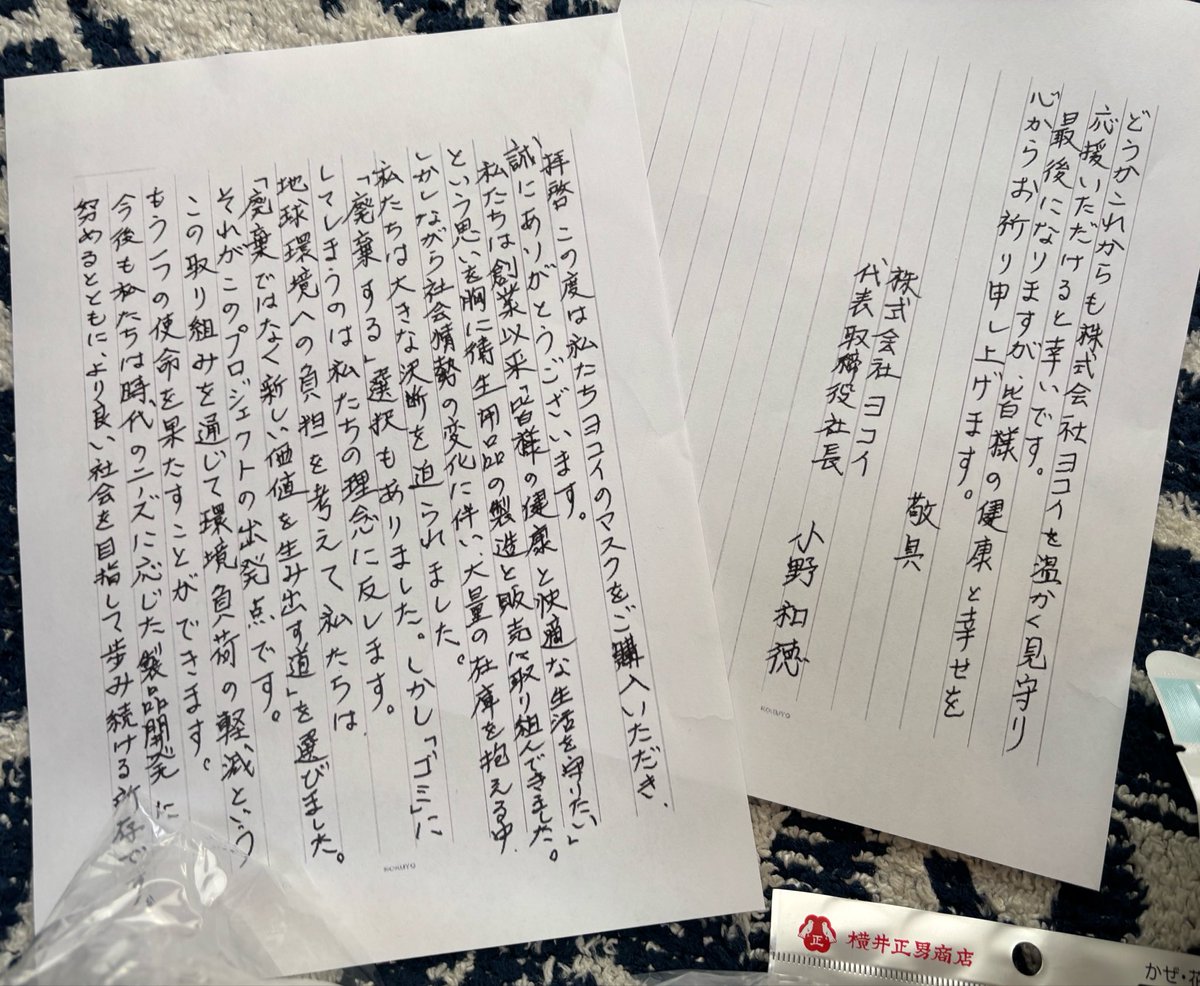 拝啓 この度は私たちヨコイのマスクをご購入いただき、
誠にありがとうございます。
私たちは創業以来「皆様の健康と快適な生活を守りたい」
という思いを胸に衛生用品の製造と販売に取り組んできました。
しかしながら社会情勢の変化に伴い、大量の在庫を抱える中、
私たちは大きな決断を迫られました。
「廃棄する」選択もありました。しかし「ゴミ」に
してしまうのは私たちの理念に反します。
地球環境への負担を考えて私たちは、
「廃棄ではなく新しい価値を生み出す道」を選びました。
それがこのプロジェクトの出発点です。
この取り組みを通じて環境負荷の軽減という
もう一つの使命を果たすことができます。
今後も私たちは時代のニーズに応じた製品開発に
努めるとともに、より良い社会を目指して歩み続ける所存です。
KOKUYO
どうかこれからも株式会社ヨコイを温かく見守り
応援いただけると幸いです。
最後になりますが、皆様の健康と幸せを
心からお祈り申し上げます。
敬具
株式会社ヨコイ
代表取締役社長 小野和徳
KOKUYO
正
横井正男商店
かぜ・花